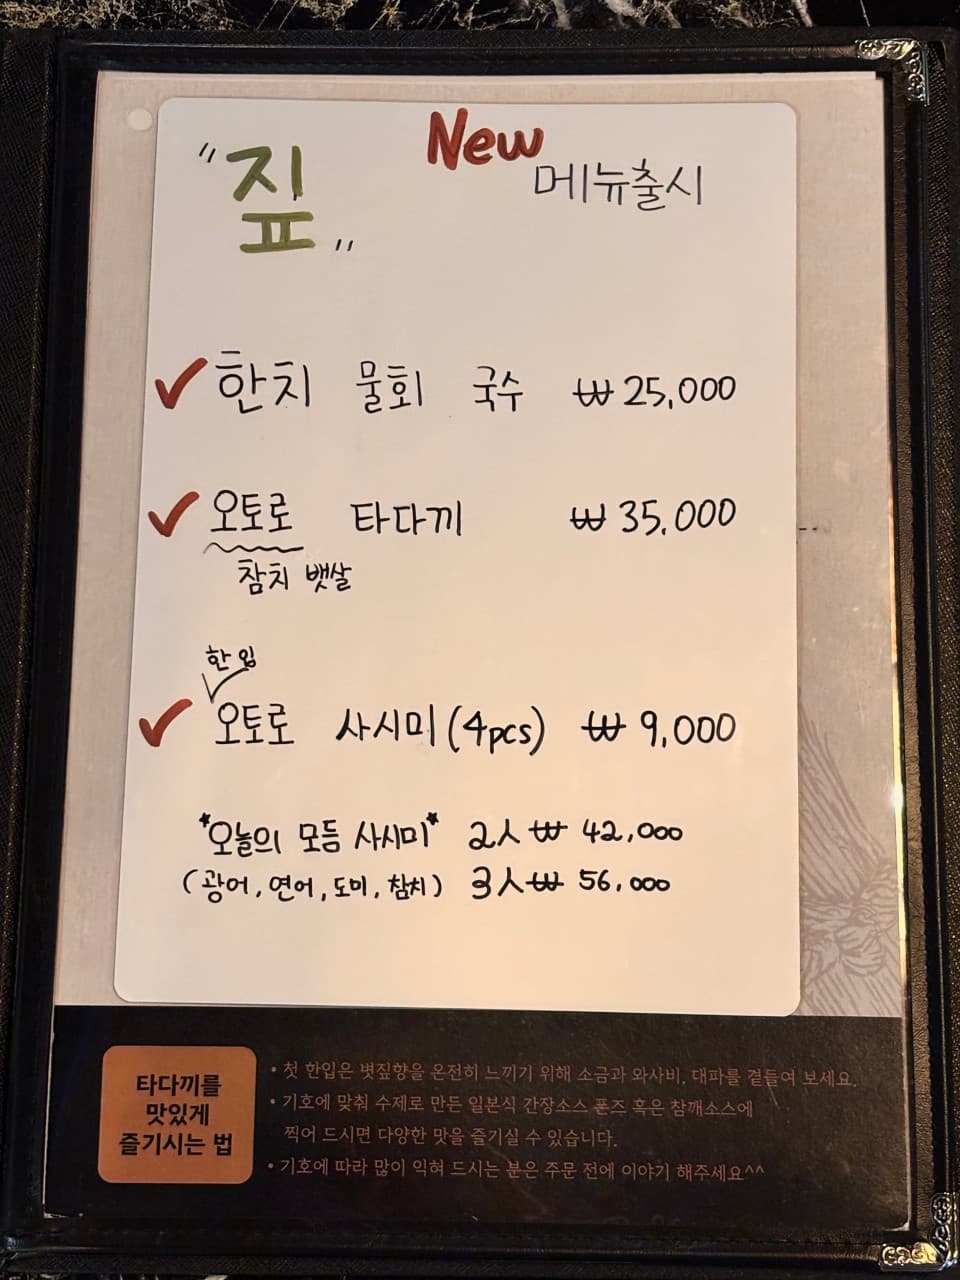 New
"짚"
메뉴출시
✓ 한치 물회 국수 ₩ 25,000
✓ 오토로 타다끼 ₩ 35,000
참치 뱃살
한입
✓ 오토로 사시미(4pcs) ₩ 9,000
*오늘의 모듬 사시미* 2人 ₩ 42,000
(광어, 연어, 도미, 참치) 3人 ₩ 56,000
타다끼를
맛있게
즐기시는 법
• 첫 한입은 볏짚향을 온전히 느끼기 위해 소금과 와사비, 대파를 곁들여 보세요.
• 기호에 맞춰 수제로 만든 일본식 간장소스 폰즈 혹은 참깨소스에
찍어 드시면 다양한 맛을 즐기실 수 있습니다.
• 기호에 따라 많이 익혀 드시는 분은 주문 전에 이야기 해주세요^^